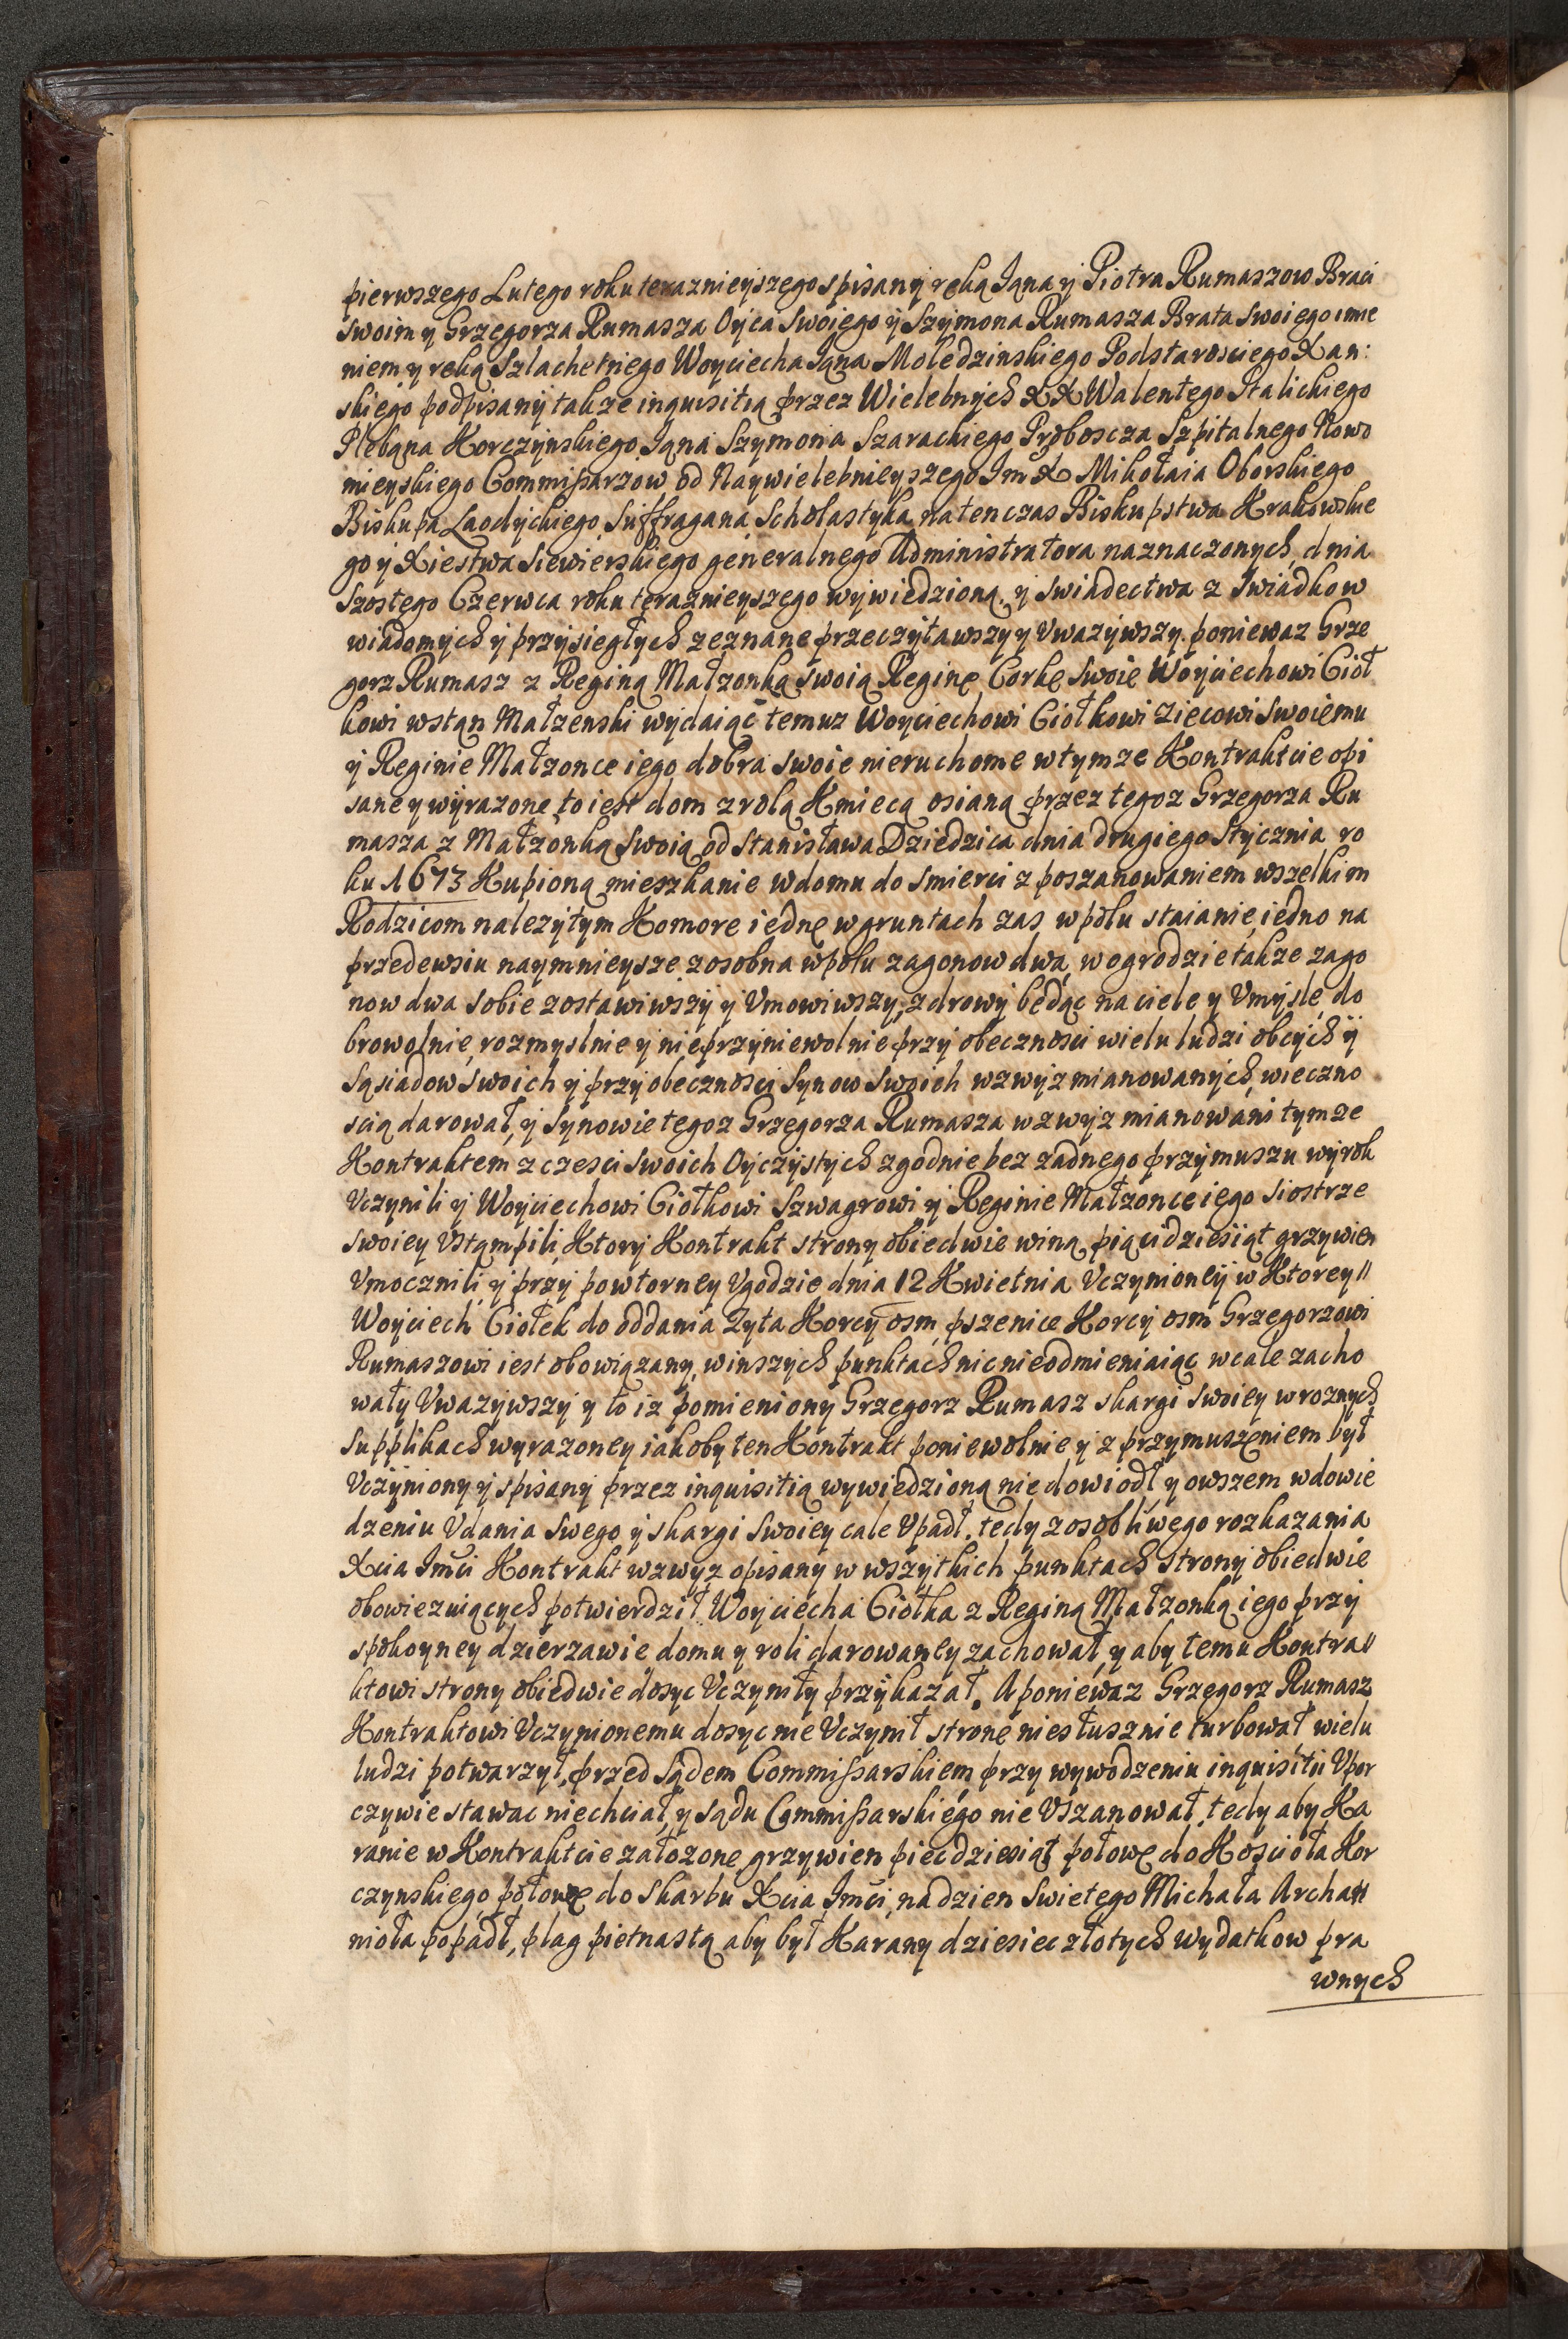 pierwszego Lutego roku terazniejszego spisany ręką Jana y Piotra Rumaszow Braci
swoim y Grzegorza Rumasza Oyca swoiego y Szymona Rumasza Brata swoiego imie
niem y ręką Szlachetnego Woyciecha Jana Moledzinskiego Podstarosciego Xan:
skiego podpisany takze inquisitią przez Wielebnych XX Walentego Stalickiego
Plebana Korczynskiego Jana Szymona Szarackiego Proboscza Szpitalnego Nowo
mieyskiego Commissarzow od Naywielebnieyszego Im X Mikołaia Oborskiego
Biskupa Laodyckiego Suffragana Scholastyka natenczas Biskupstwa Krakowskie
go y Xiestwa Siewierskiego generalnego Administratora naznaczonych dnia
Szostego Czerwca roku teraznieyszego wywiedzioną y swiadectwa z Swiadkow
wiadomych y przysiegłych zeznane przeczytawszy y Uwazywszy poniewaz Grze
gorz Rumasz z Reginą Małzonką swoią Reginę Corkę swoie Woyciechowi Cioł
kowi wstan Małzenski wydaiąc temuz Woyciechowi Ciołkowi Ziecowi swoiemu
y Reginie Małzonce iego dobra swoie nieruchome wtymze Kontrakcie opi
sane y wyrazone to iest dom z rolą Kmiecą osianą przez tegoz Grzegorza Ru
masza z Małzonką swoią od Stanisława Dziedzica dnia drugiego Stycznia ro
ku 1673 Kupioną mieszkanie wdomu do smierci z poszanowaniem wszelkim
Rodzicom nalezytym Komore iednę w gruntach zas w polu staianie iedno na
przedewsiu naymnieysze zosobna wpolu zagonow dwa w ogrodzie takze zago
now dwa sobie zostawiwszy y Umowiwszy, zdrowy będąc na ciele y Umysle do
browolnie rozmyslnie y nieprzyniewolnie przy obecznosci wielu ludzi obcych y
Sąsiadow swoich y przy obecznosci Synow swoich wzwyz mianowanych, wieczno
scią darował, y Synowie tegoz Grzegorza Rumasza wzwyz mianowani tymze
Kontraktem z czesci swoich Oyczystych zgodnie bez zadnego przymuszu wyrok
Uczynili y Woyciechowi Ciołkowi Szwagrowi y Reginie Małzonce iego Siostrze
swoiey Ustąmpili, Ktory Kontrakt strony obiedwie winą piącidziesiąt grzywien
Umocznili y przy powtorney Ugodzie dnia 12 Kwietnia Uczynioney w Ktorey //
Woyciech Ciołek do oddania Zyta Korcy osm, pszenice Korcy osm Grzegorzowi
Rumaszowi iest obowiązany, winszych punktach nic nieodmieniaiąc wcale zacho
wały Uwazywszy y to iz pomieniony Grzegorz Rumasz skargi swoiey wroznych
Supplikach wyrazoney iakoby ten Kontrakt poniewolnie y z przymuszeniem był
Uczyniony y spisany przez inquisitią wywiedzioną nie dowiodł y owszem wdowie
dzeniu Udania swego y skargi swoiey cale Upadł, tedy zosobliwego rozkazania
Xcia Imci Kontrakt wzwyz opisany w wszytkich punktach strony obiedwie
obowiezuiących potwierdził Woyciecha Ciołka z Reginą Małzonką iego przy
spokoyney dzierzawie domu y roli darowaney zachował, y aby temu Kontra//
ktowi strony obiedwie dosyc Uczyniły przykazał. A poniewaz Grzegorz Rumasz
Kontraktowi Uczynionemu dosyc nie Uczynił stronę niesłusznie turbował, wielu
ludzi potwarzył, przed Sądem Commissarskiem przy wywodzeniu inquisitii Upor
czywie stawac niechciał, y sądu Commissarskiego nie Uszanował, tedy aby Ka
ranie w Kontrakcie załozone grzywien piecdziesiąt połowę do Kosciola Kor
czynskiego, połowę do Skarbu Xcia Imci, na dzien Swietego Michała Archan
nioła popadł, plag pietnastą aby był Karany dziesiec złotych wydatkow pra
wnych